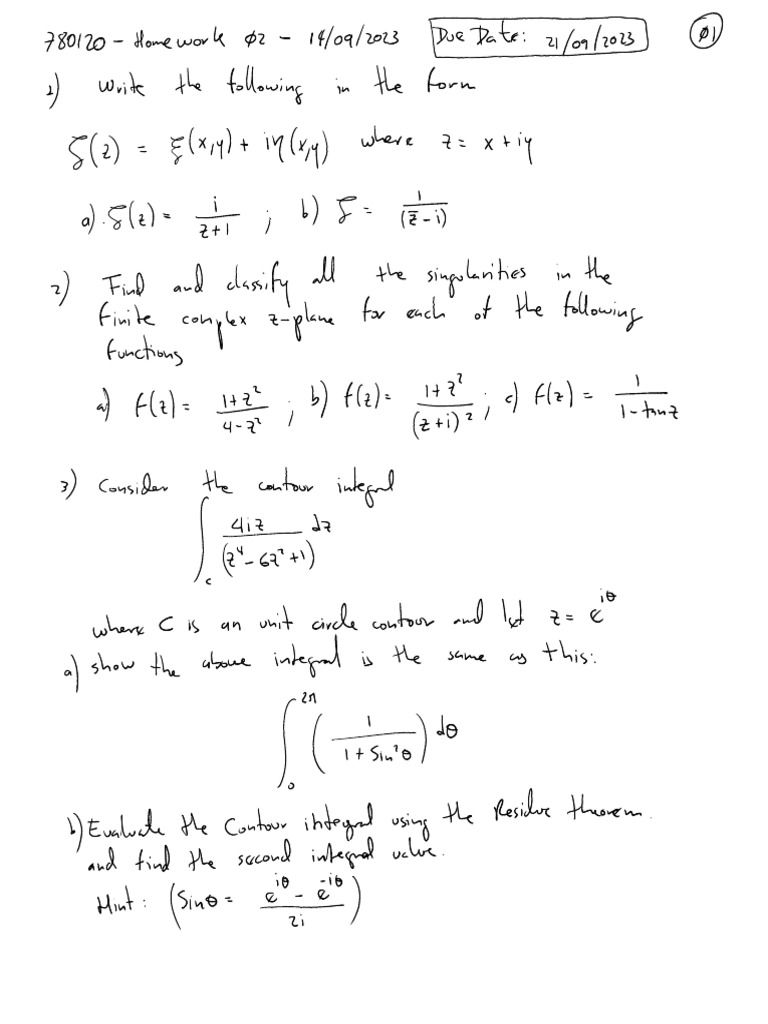 780120 - Homework 02 - 14/09/2023 Due Date: 21/09/2023 01
1) Write the following in the form
ζ(z) = ξ(x,y) + iη(x,y) where z = x + iy
a) ζ(z) = i/(z+1) ; b) ζ = 1/(z̄-i)
2) Find and classify all the singularities in the
finite complex z-plane for each of the following
functions
a) f(z) = (1+z²)/(4-z²) ; b) f(z) = (1+z²)/(z+i)² ; c) f(z) = 1/(1-tanz)
3) Consider the contour integral
∫_c 4iz/(z⁴-6z²+1) dz
where C is an unit circle contour and let z = e^{iθ}
a) show the above integral is the same as this:
∫_0^{2π} (1/(1+Sin²θ)) dθ
b) Evaluate the Contour integral using the Residue theorem.
and find the second integral value.
Hint: (Sinθ = (e^{iθ} - e^{-iθ})/2i)